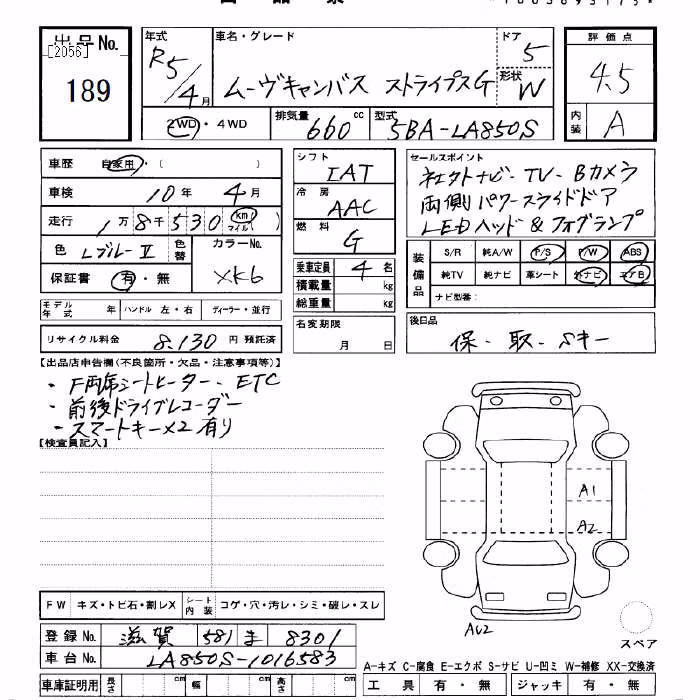 出品No.
[2056]
189
年式
R5/4月
車名・グレード
ムーヴキャンバス ストライプスG
ドア
5
形状
W
2WD・4WD
排気量
660 cc
型式
5BA-LA850S
評価点
4.5
内装
A
車歴 自家用・( )
車検 10年 4月
走行 1万8千530 km マイル( )
色 Lブルー Ⅱ
色替
カラーNo. XK6
保証書 有・無
モデル年式 年 ハンドル 左・右 ディーラー・並行
リサイクル料金 8,130円 預託済
シフト IAT
冷房 AAC
燃料 G
乗車定員 4名
積載量 kg
総重量 kg
名変期限
月 日
セールスポイント
社外ナビ-TV-Bカメラ
両側パワースライドドア
LEDヘッド&フォグランプ
装備品
S/R 純A/W P/S P/W ABS
純TV 純ナビ 革シート 外ナビ エアB
ナビ型番:
後日品
保・取、Sキー
【出品店申告欄(不良箇所・欠品・注意事項等)】
・F両席シートヒーター、ETC
・前後ドライブレコーダー
・スマートキー×2有り
【検査員記入】
A1
A2
AU2
スペア
FW キズ・トビ石・割レX シート内装 コゲ・穴・汚レ・シミ・破レ・スレ
登録No. 滋賀 581 ま 8301
車台No. LA850S-1016583
車庫証明用 長さ cm 幅 cm 高さ cm
A-キズ C-腐食 E-エクボ S-サビ U-凹ミ W-補修 XX-交換済
工具 有・無 ジャッキ 有・無